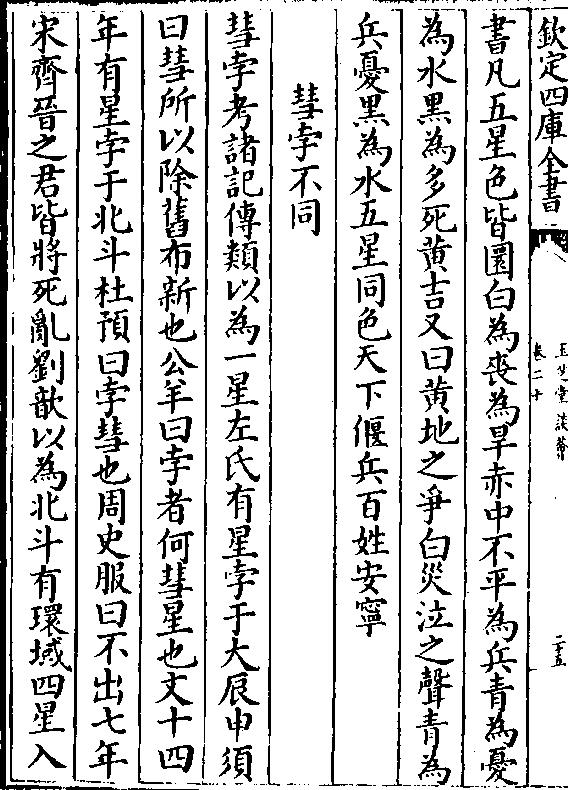 欽定四庫全書
玉芝堂談薈
卷二十
二十五
書凡五星色皆圜白為喪為旱赤中不平為兵青為憂
為水黑為多死黄吉又曰黄地之爭白災泣之聲青為
兵憂黑為水五星同色天下偃兵百姓安寧
彗孛不同
彗孛考諸記傳類以為一星左氏有星孛于大辰申須
曰彗所以除舊布新也公羊曰孛者何彗星也文十四
年有星孛于北斗杜預曰孛彗也周史服曰不出七年
宋齊晉之君皆將死亂劉歆以為北斗有環域四星入